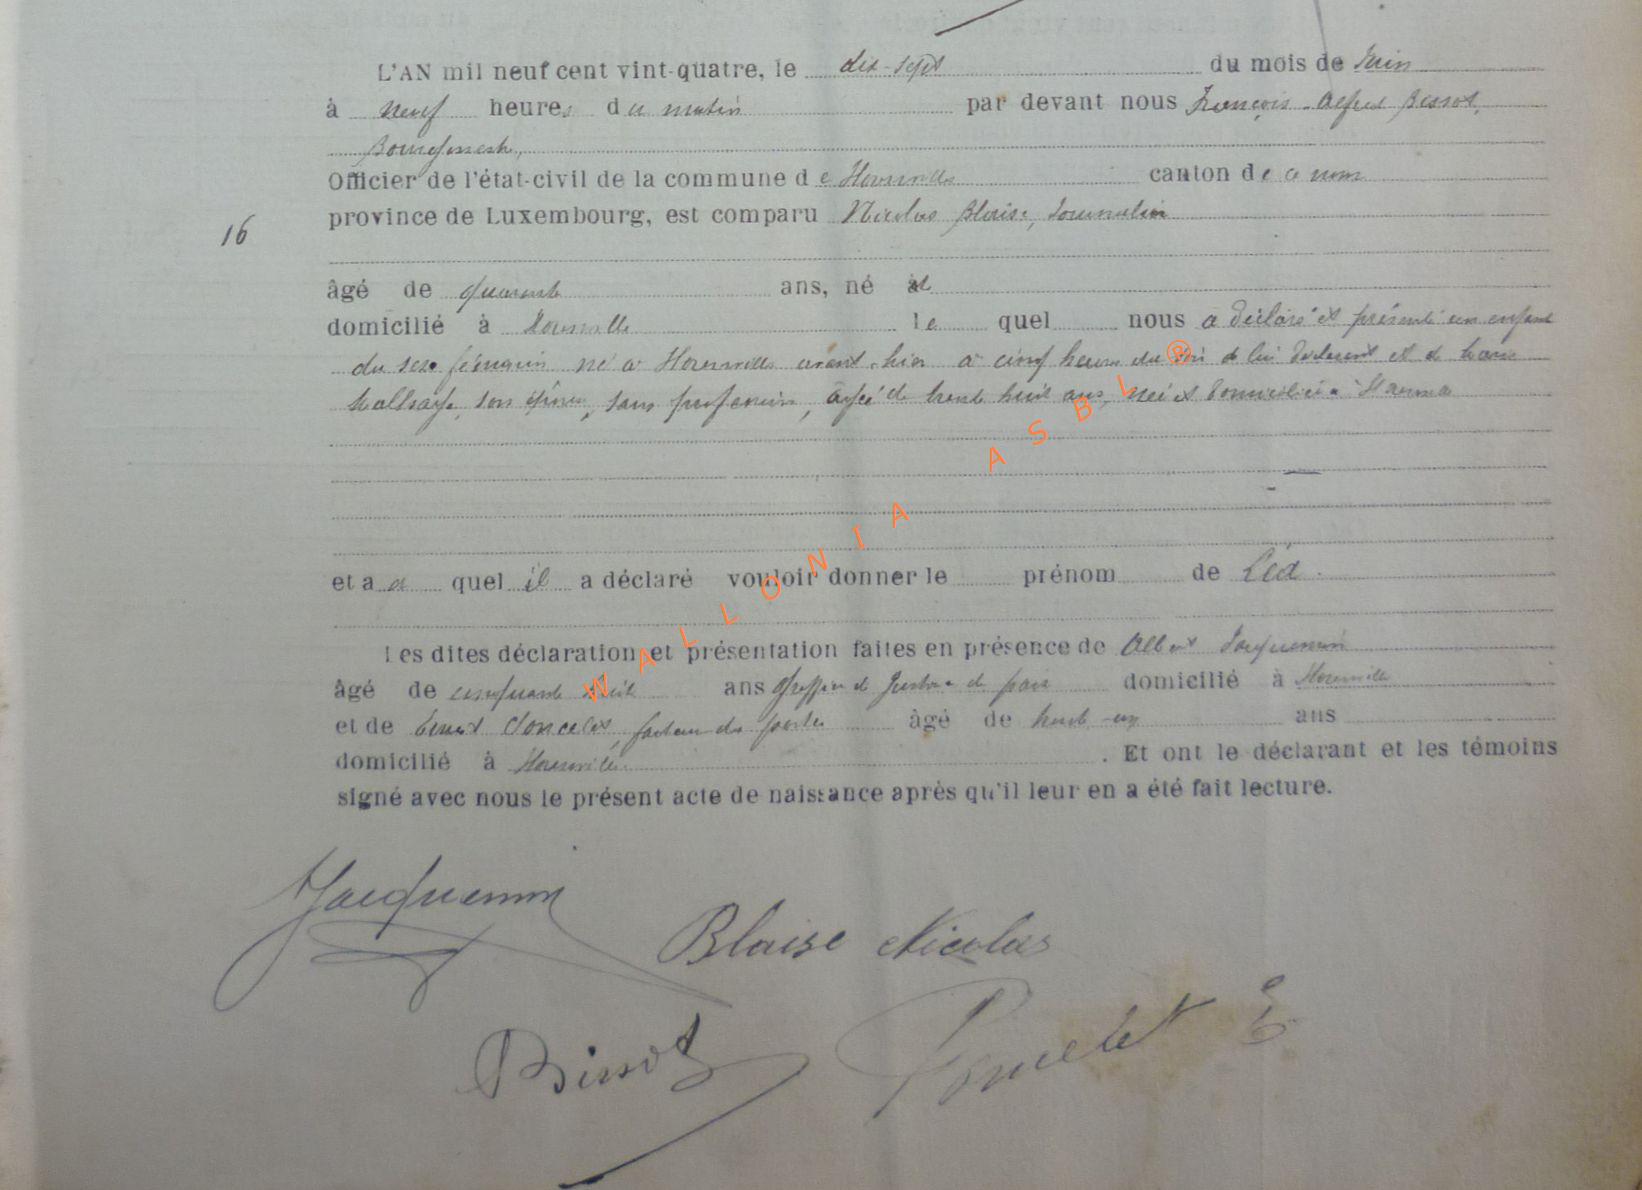 L'AN mil neuf cent vint-quatre, le dix-sept du mois de Juin
à neuf heures du matin par devant nous François Alfred Bissot,
Bourgmestre,
Officier de l'état-civil de la commune de canton de
16
province de Luxembourg, est comparu Nicolas Blaise, Journalier
âgé de quarante ans, né et
domicilié à le quel nous a déclaré et présenté un enfant
du sexe féminin né à avant-hier à cinq heures du soir de lui déclarant et de
son épouse, sans profession, âgée de trente huit ans, née et domiciliée à
et a a quel il a déclaré vouloir donner le prénom de Léa.
Les dites déclaration et présentation faites en présence de Albert Jacquemin
âgé de cinquante ans greffier de Justice de paix domicilié à
et de facteur des postes âgé de trente-un ans
domicilié à . Et ont le déclarant et les témoins
signé avec nous le présent acte de naissance après qu'il leur en a été fait lecture.
WALLONIA ASBL ®
Jacquemin
Blaise Nicolas
Bissot
Poncelet E